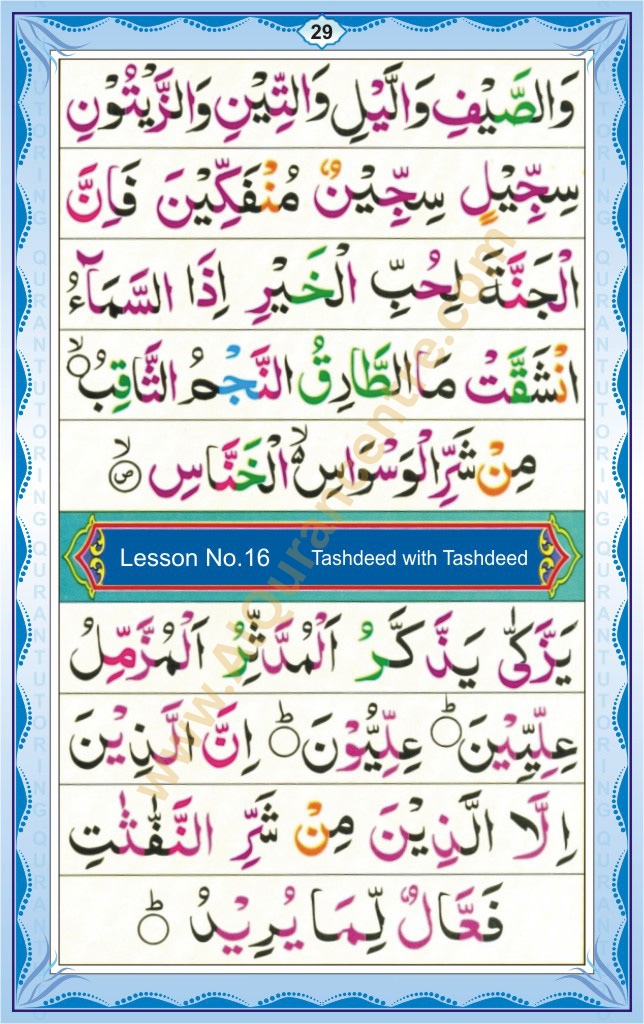 29
وَالصَّيْفِ وَالَّيْلِ وَالتِّيْنِ وَالزَّيْتُوْنِ
سِجِّيْلٍ سِجِّيْنٌ مُنْفَكِّيْنَ فَاِنَّ
الْجَنَّةَ لِحُبِّ الْخَيْرِ اِذَا السَّمَآءُ
انْشَقَّتْ مَا الطَّارِقُ النَّجْمُ الثَّاقِبُ ۙ
مِنْ شَرِّ الْوَسْوَاسِ ۙ الْخَنَّاسِ ۙ ص
Lesson No.16 Tashdeed with Tashdeed
يَزَّكّٰى يَذَّكَّرُ اَلْمُدَّثِّرُ اَلْمُزَّمِّلُ
عِلِّيِّيْنَ ؕ عِلِّيُّوْنَ ؕ اِنَّ الَّذِيْنَ
اِلَّا الَّذِيْنَ مِنْ شَرِّ النَّفّٰثٰتِ
فَعَّالٌ لِّمَا يُرِيْدُ ؕ
www.AlQurancentre.com
QURAN TUTORING